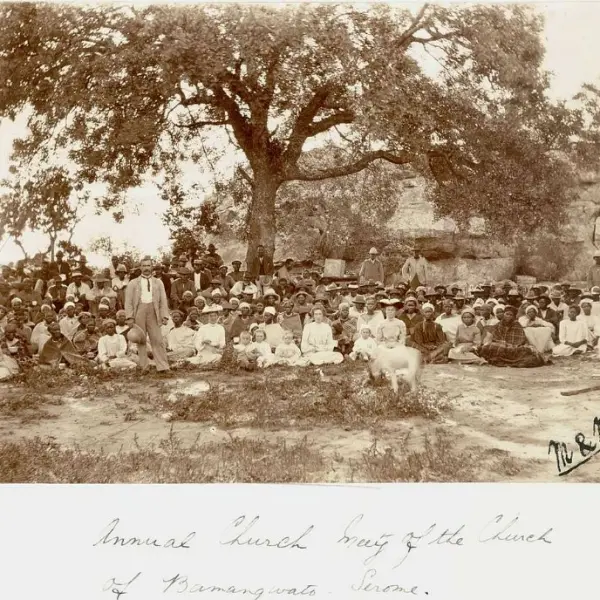 M &
Annual Church Meetg of the Church
of Bamangwato. Serome.